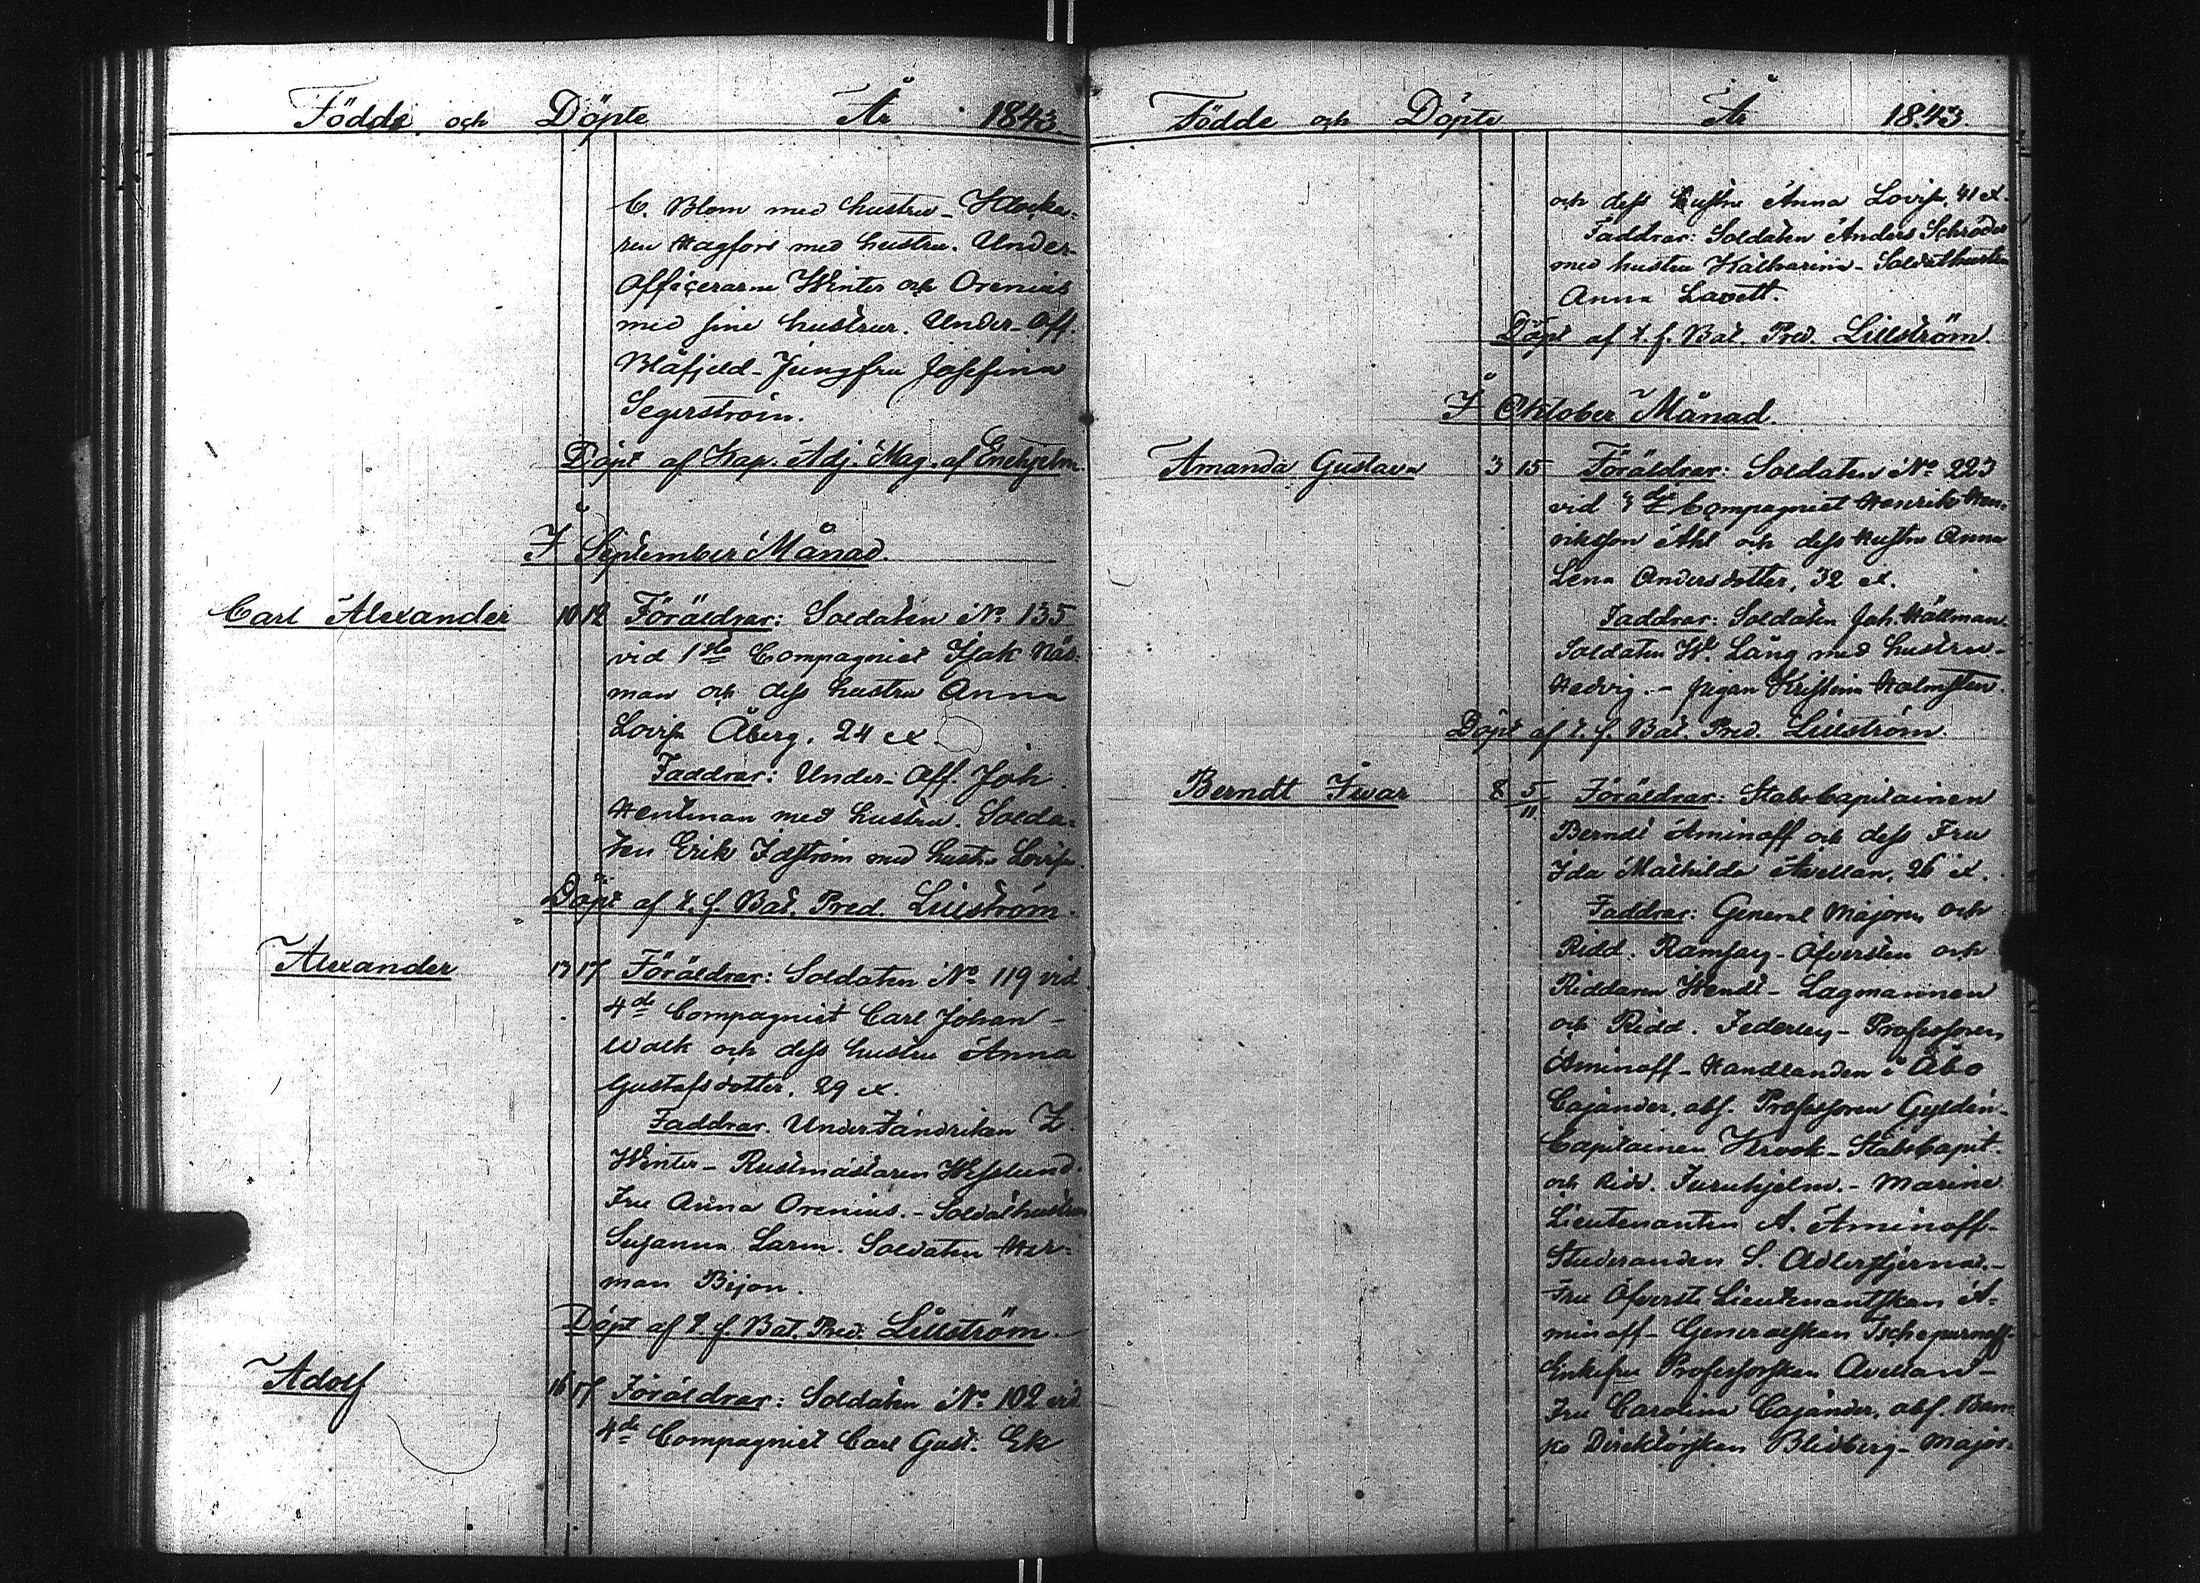 Födde och Döpte År 1843
C. Blom med hustru - Klocka-
ren Hagfors med hustru. Under-
Officerarne Winter och Orenius
med sine hustrur. Under-Off.
Blåfjeld - Jungfru Josefina
Segerström.
Döpt af Kap. Adj. Mag. af Enehjelm.
I September Månad.
Carl Alexander 10 12 Föräldrar: Soldaten No 135
vid 1sta Compagniet Isak Näs-
man och dess hustru Anna
Lovisa Åberg, 24 et.
Faddrar: Under-Off. Joh.
Hentman med hustru. Solda-
ten Erik Idström med hustru Lovisa.
Döpt af t. f. Bat. Pred. Lillström.
Alexander 13 17 Föräldrar: Soldaten No 119 vid
4de Compagniet Carl Johan
Walk och dess hustru Anna
Gustafsdotter, 29 et.
Faddrar. Under-Fändriken Z.
Winter - Rustmästaren Wesslund.
Fru Anna Orenius. - Soldathustrun
Susanna Larm. Soldaten Her-
man Bijon.
Döpt af t. f. Bat. Pred. Lillström.
Adolf 16 17 Föräldrar: Soldaten No 102 vid
4de Compagniet Carl Gust. Ek
Födde och Döpte År 1843.
och dess Hustru Anna Lovisa, 41 et.
Faddrar: Soldaten Anders Schröder
med hustru Katharina - Soldathustrun
Anna Lavett.
Döpt af t. f. Bat. Pred. Lillström.
I Oktober Månad.
Amanda Gustava 3 15 Föräldrar: Soldaten No 223
vid 3dje Compagniet Henrik Hen-
riksson Ahl och dess Hustru Anna
Lena Andersdotter, 32 et.
Faddrar: Soldaten Joh. Hällman
Soldaten W. Lång med hustru
Hedvig. - pigan Kristina Holmsten.
Döpt af t. f. Bat. Pred. Lillström.
Berndt Ivar 8 5/11 Föräldrar: StabsCapitainen
Berndt Aminoff och dess Fru
Ida Mathilda Avellan, 26 et.
Faddrar: General Majoren och
Ridd. Ramsay - Öfversten och
Riddaren Wendt - Lagmannen
och Ridd. Federley - Professoren
Aminoff - Handlanden i Åbo
Cajander, abs. Professoren Gyldén -
Capitainen Krook - StabsCapit.
och Ridd. Furuhjelm. - Marine
Lieutenanten A. Aminoff -
Studeranden S. Adlerstjerna. -
Fru Öfverst Lieutenantskan A-
minoff - Generalskan Tschepurnoff -
Enkefru Professorskan Avellan -
Fru Carolina Cajander, abs. Ban-
ko Direktörskan Blidberg - Major-